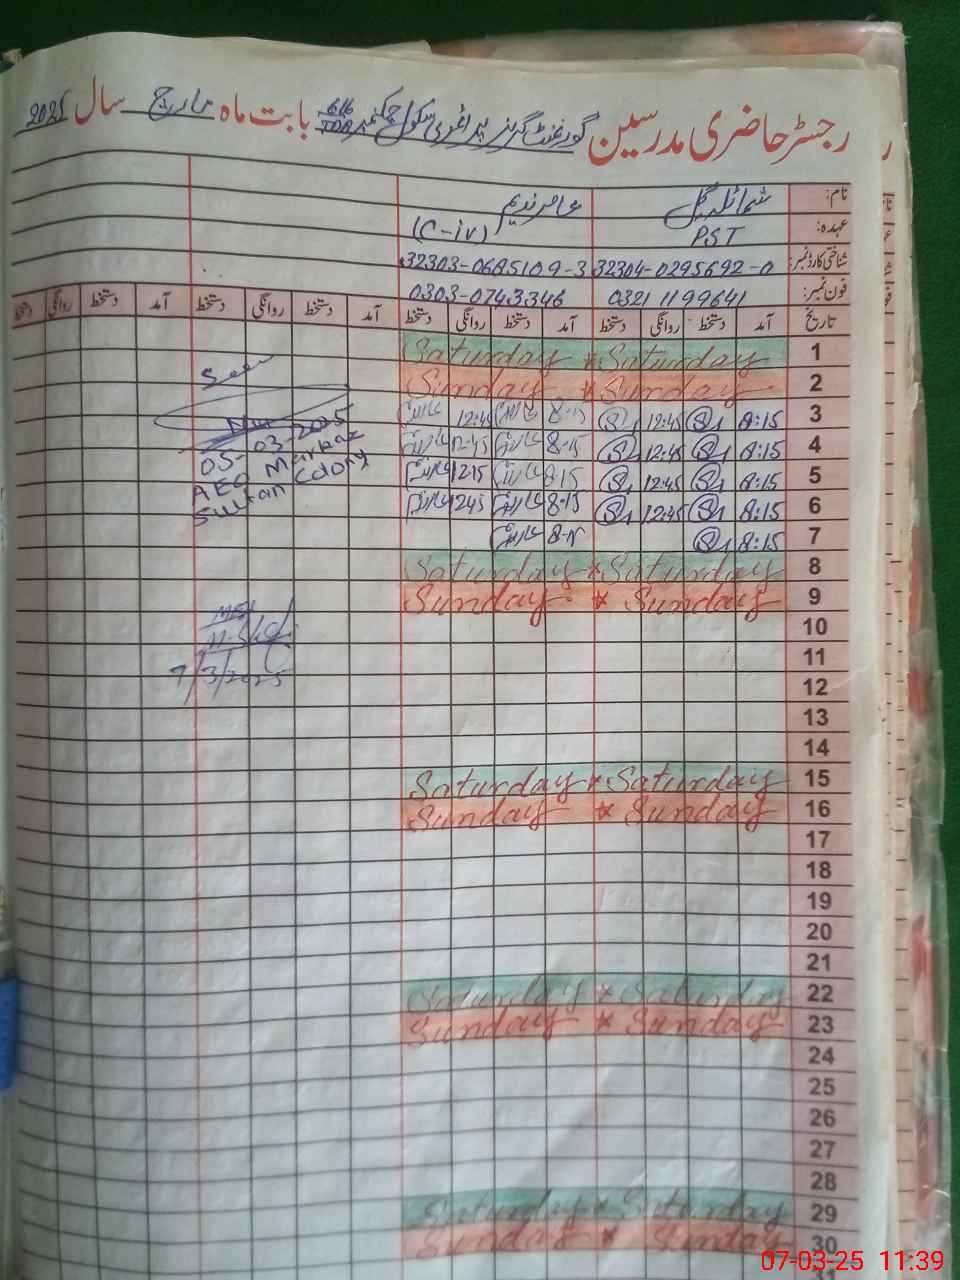 رجسٹر حاضری مدرسین گورنمنٹ گرلز پرائمری سکول چکنمبر 616/TDA بابت ماہ مارچ سال 2025
نام: شمائلہ گل عامر ندیم
عہدہ: PST (C-iv)
شناختی کارڈ نمبر: 32304-0295692-0 32303-0685109-3
فون نمبر: 0321 1199641 0303-0743346
تاریخ آمد دستخط روانگی دستخط آمد دستخط روانگی دستخط آمد دستخط روانگی دستخط آمد دستخط روانگی دستخط
Saturday * Saturday 1
Sunday * Sunday 2
12:45 8-15 12:45 8:15 3
12-45 8-15 12:45 8:15 4
1215 8-15 12:45 8:15 5
1245 8-15 12:45 8:15 6
8-15 8:15 7
Saturday * Saturday 8
Sunday * Sunday 9
10
11
12
13
14
Saturday * Saturday 15
Sunday * Sunday 16
17
18
19
20
21
Saturday * Saturday 22
Sunday * Sunday 23
24
25
26
27
28
Saturday * Saturday 29
Sunday * Sunday 30
See
05-03-2025
AEO Markaz
Sultan Colony
7/3/2025
07-03-25 11:39